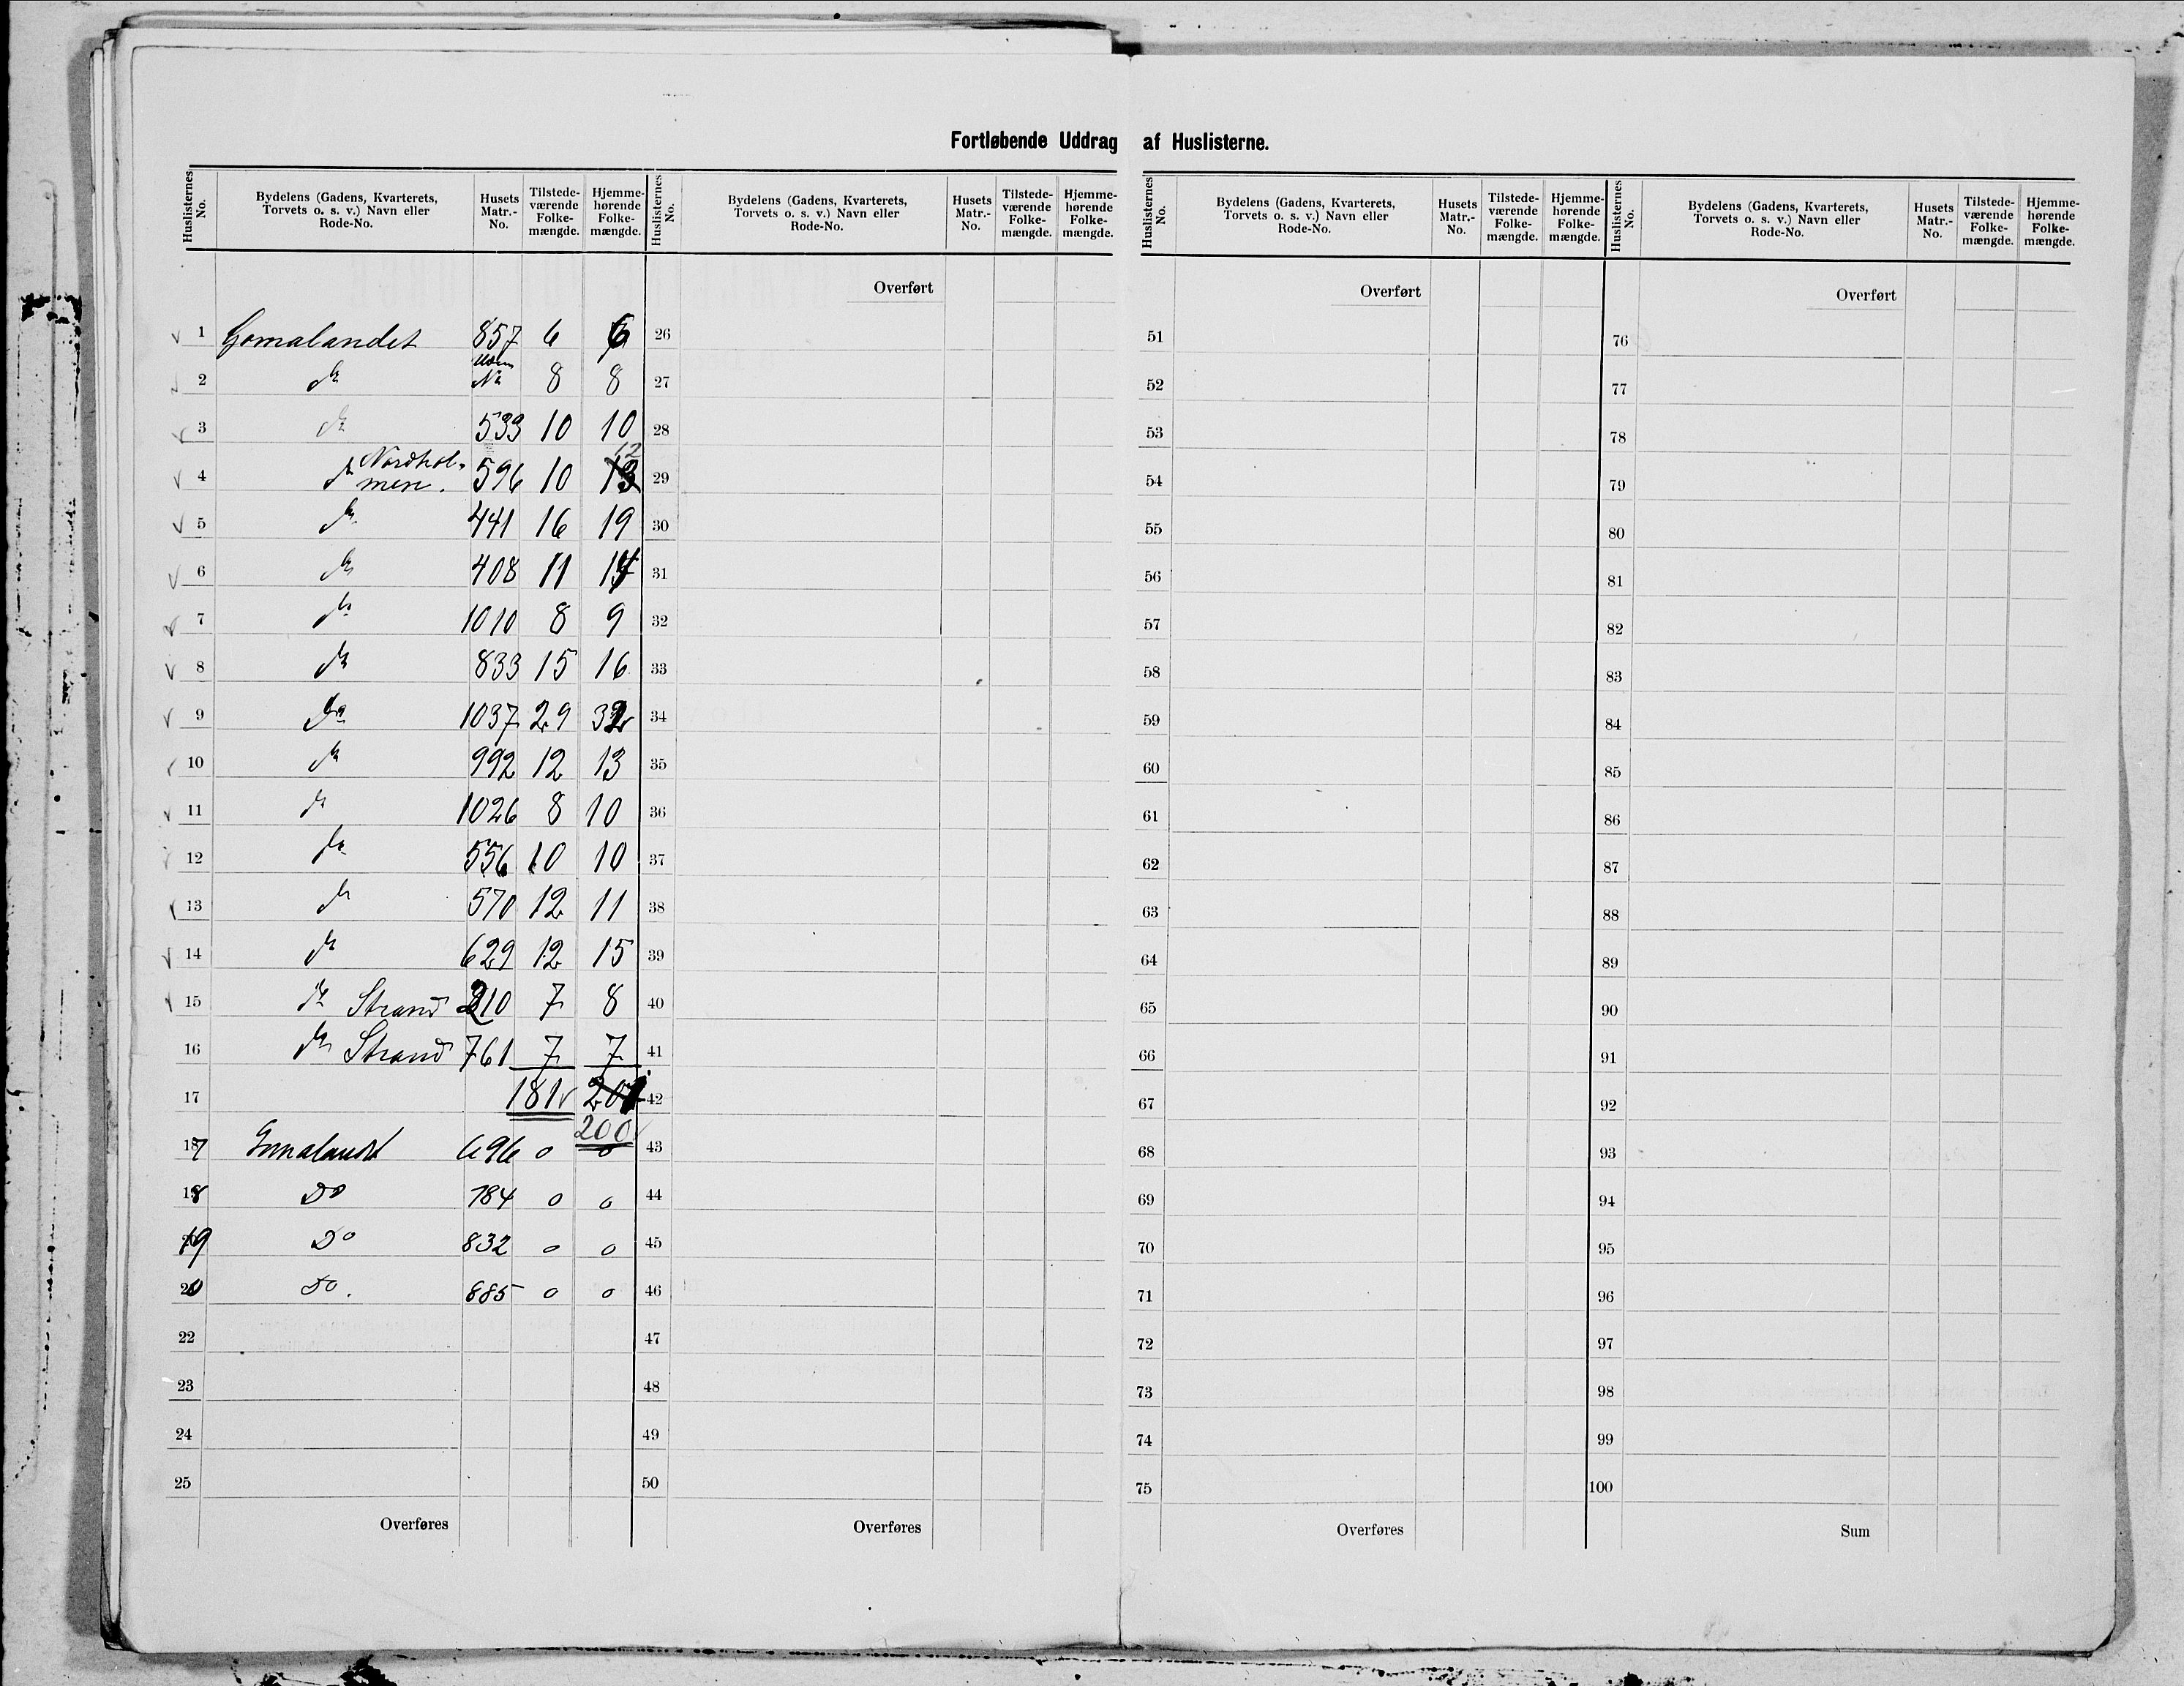 Fortløbende Uddrag af Huslisterne.
Huslisternes No. Bydelens (Gadens, Kvarterets, Torvets o. s. v.) Navn eller Rode-No. Husets Matr.-No. Tilstedeværende Folkemængde. Hjemmehørende Folkemængde.
Huslisternes No. Bydelens (Gadens, Kvarterets, Torvets o. s. v.) Navn eller Rode-No. Husets Matr.-No. Tilstedeværende Folkemængde. Hjemmehørende Folkemængde.
Huslisternes No. Bydelens (Gadens, Kvarterets, Torvets o. s. v.) Navn eller Rode-No. Husets Matr.-No. Tilstedeværende Folkemængde. Hjemmehørende Folkemængde.
Huslisternes No. Bydelens (Gadens, Kvarterets, Torvets o. s. v.) Navn eller Rode-No. Husets Matr.-No. Tilstedeværende Folkemængde. Hjemmehørende Folkemængde.
Overført Overført Overført
1 Gomalandet 857 6 6 26 51 76
2 do uden No 8 8 27 52 77
3 do 533 10 10 28 53 78
12
4 do Nordholmen. 596 10 13 29 54 79
5 do 441 16 19 30 55 80
6 do 408 11 14 31 56 81
7 do 1010 8 9 32 57 82
8 do 833 15 16 33 58 83
9 do 1037 29 32 34 59 84
10 do 992 12 13 35 60 85
11 do 1026 8 10 36 61 86
12 do 556 10 10 37 62 87
13 do 570 12 11 38 63 88
14 do 629 12 15 39 64 89
15 do Strand 210 7 8 40 65 90
16 do Strand 761 7 7 41 66 91
17 181 201 42 67 92
200
17 Gomalandet 696 0 0 43 68 93
18 Do 784 0 0 44 69 94
19 Do 832 0 0 45 70 95
20 Do. 885 0 0 46 71 96
22 47 72 97
23 48 73 98
24 49 74 99
25 50 75 100
Overføres Overføres Overføres Sum